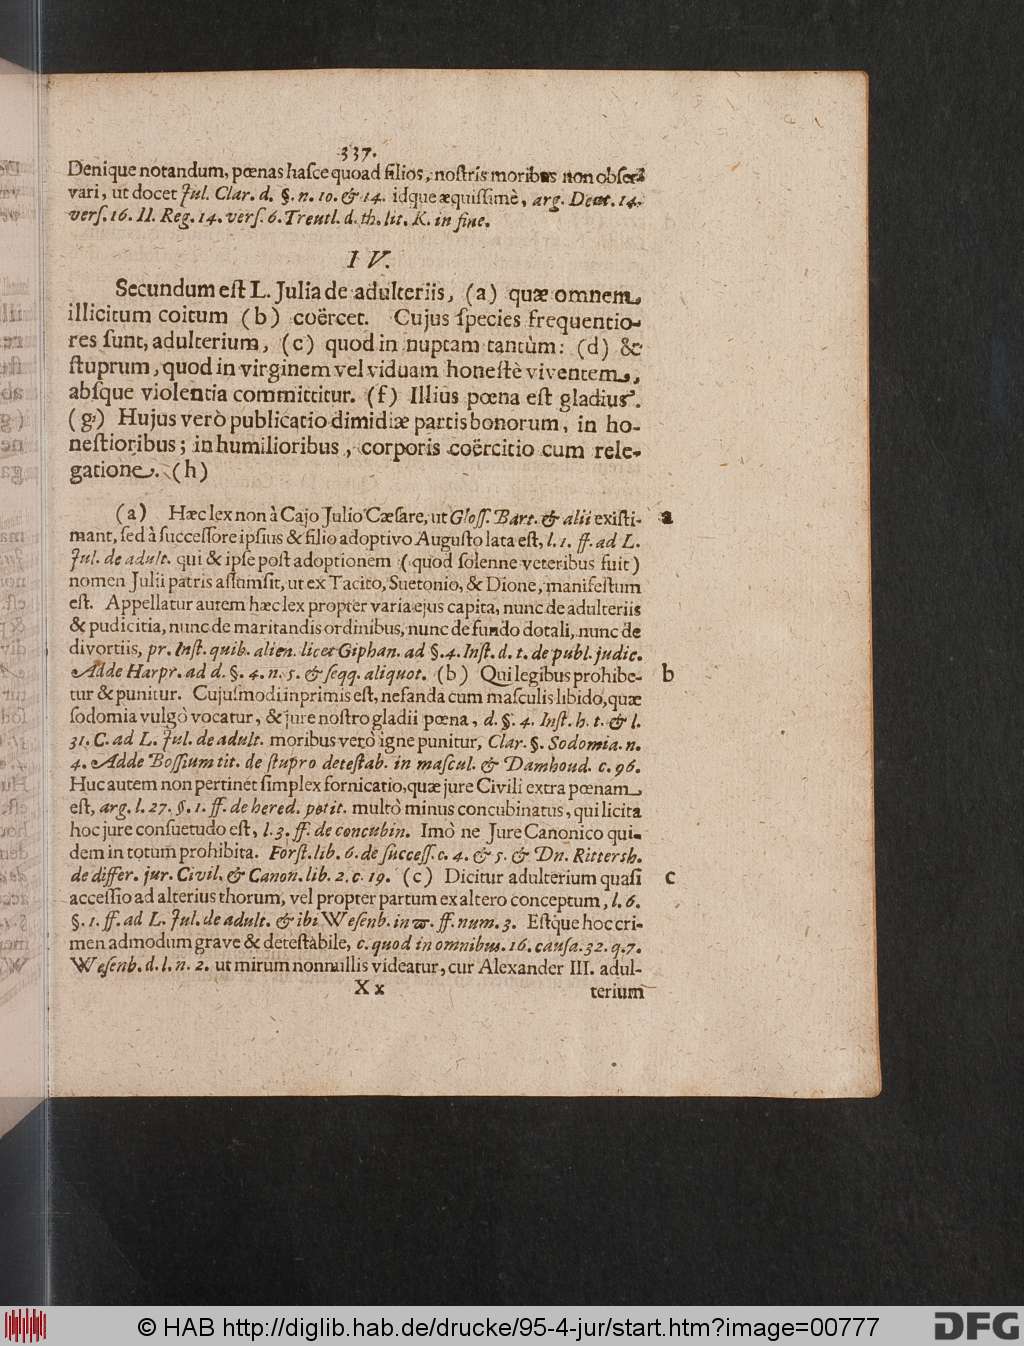 337.
Denique notandum, pœnas hasce quoad filios, nostris moribus non obser-
vari, ut docet Jul. Clar. d. §. n. 10. & 14. idque æquissimè, arg. Deut. 14.
vers. 16. II. Reg. 14. vers. 6. Treutl. d. th. lit. K. in fine.
IV.
Secundum est L. Julia de adulteriis, (a) quæ omnem
illicitum coitum (b) coërcet. Cujus species frequentio-
res sunt, adulterium, (c) quod in nuptam tantùm: (d) &
stuprum, quod in virginem vel viduam honestè viventem,
absque violentia committitur. (f) Illius pœna est gladius.
(g) Hujus verò publicatio dimidiæ partis bonorum, in ho-
nestioribus; in humilioribus, corporis coërcitio cum rele-
gatione. (h)
(a) Hæc lex non à Cajo Julio Cæsare, ut Gloss. Bart. & alii existi- a
mant, sed à successore ipsius & filio adoptivo Augusto lata est, l. 1. ff. ad L.
Jul. de adult. qui & ipse post adoptionem (quod solenne veteribus fuit)
nomen Julii patris assumsit, ut ex Tacito, Suetonio, & Dione, manifestum
est. Appellatur autem hæc lex propter varia ejus capita, nunc de adulteriis
& pudicitia, nunc de maritandis ordinibus, nunc de fundo dotali, nunc de
divortiis, pr. Inst. quib. alien. licet Giphan. ad §. 4. Inst. d. t. de publ. judic.
Adde Harpr. ad d. §. 4. n. 5. & seqq. aliquot. (b) Qui legibus prohibe- b
tur & punitur. Cujusmodi inprimis est, nefanda cum masculis libido, quæ
sodomia vulgò vocatur, & jure nostro gladii pœna, d. §. 4. Inst. h. t. & l.
31. C. ad L. Jul. de adult. moribus verò igne punitur, Clar. §. Sodomia. n.
4. Adde Bossium tit. de stupro detestab. in mascul. & Damhoud. c. 96.
Huc autem non pertinet simplex fornicatio, quæ jure Civili extra pœnam
est, arg. l. 27. §. 1. ff. de hered. petit. multò minus concubinatus, qui licita
hoc jure consuetudo est, l. 3. ff. de concubin. Imò ne Jure Canonico qui-
dem in totum prohibita. Forst. lib. 6. de success. c. 4. & 5. & Dn. Rittersh.
de differ. jur. Civil. & Canon. lib. 2. c. 19. (c) Dicitur adulterium quasi c
accessio ad alterius thorum, vel propter partum ex altero conceptum, l. 6.
§. 1. ff. ad L. Jul. de adult. & ibi Wesenb. in ϖ. ff. num. 3. Estque hoc cri-
men admodum grave & detestabile, c. quod in omnibus. 16. causa. 32. q. 7.
Wesenb. d. l. n. 2. ut mirum nonnullis videatur, cur Alexander III. adul-
Xx terium
© HAB http://diglib.hab.de/drucke/95-4-jur/start.htm?image=00777
DFG